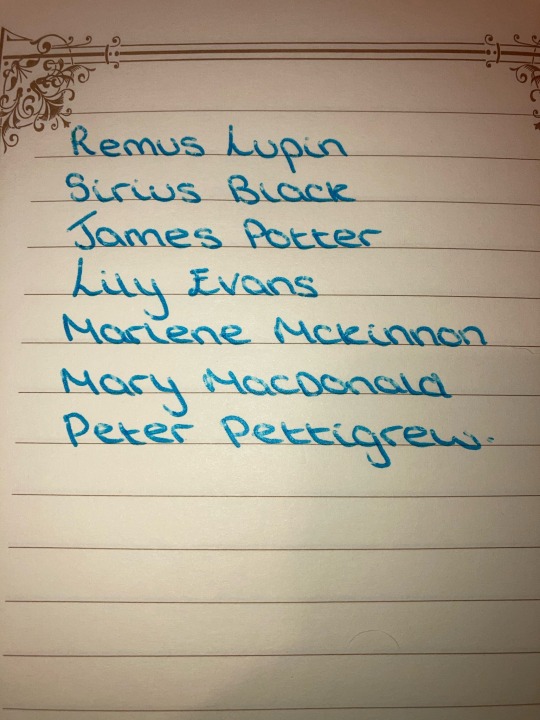 Remus Lupin
Sirius Black
James Potter
Lily Evans
Marlene Mckinnon
Mary MacDonald
Peter Pettigrew.